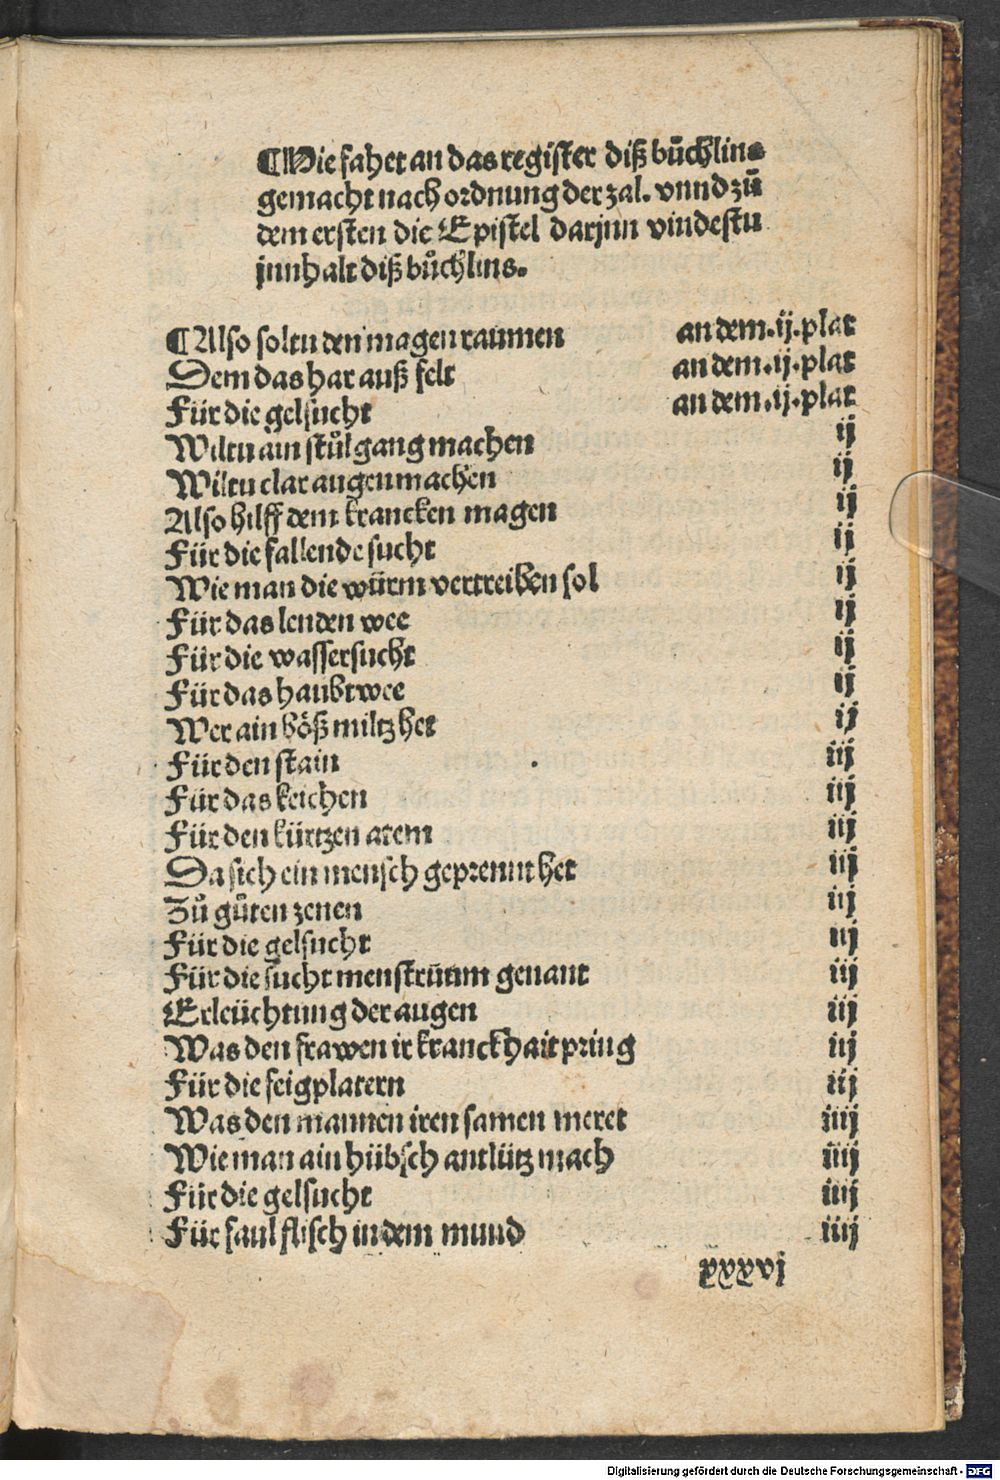 ¶Hie fahet an das register diß bůchlins
gemacht nach ordnung der zal. vnnd zů
dem ersten die Epistel darjnn vindestu
jnnhalt diß bůchlins.
¶Also soltu den magen raumen an dem.ij.plat
Dem das har auß felt an dem.ij.plat
Für die gelsucht an dem.ij.plat
Wiltu ain stůlgang machen ij
Wiltu clar augen machen ij
Also hilff dem krancken magen ij
Für die fallende sucht ij
Wie man die würm vertreiben sol ij
Für das lenden wee ij
Für die wassersucht ij
Für das haubtwee ij
Wer ain böß miltz het ij
Für den stain iij
Für das keichen iij
Für den kürtzen atem iij
Da sich ein mensch geprennt het iij
Zů gůten zenen iij
Für die gelsucht iij
Für die sucht menstrūum genant iij
Erleüchtung der augen iij
Was den frawen ir kranckhait pring iij
Für die feigplatern iij
Was den mannen iren samen meret iiij
Wie man ain hübsch antlütz mach iiij
Für die gelsucht iiij
Für faul flisch in dem mund iiij
xxxvj
Digitalisierung gefördert durch die Deutsche Forschungsgemeinschaft - DFG